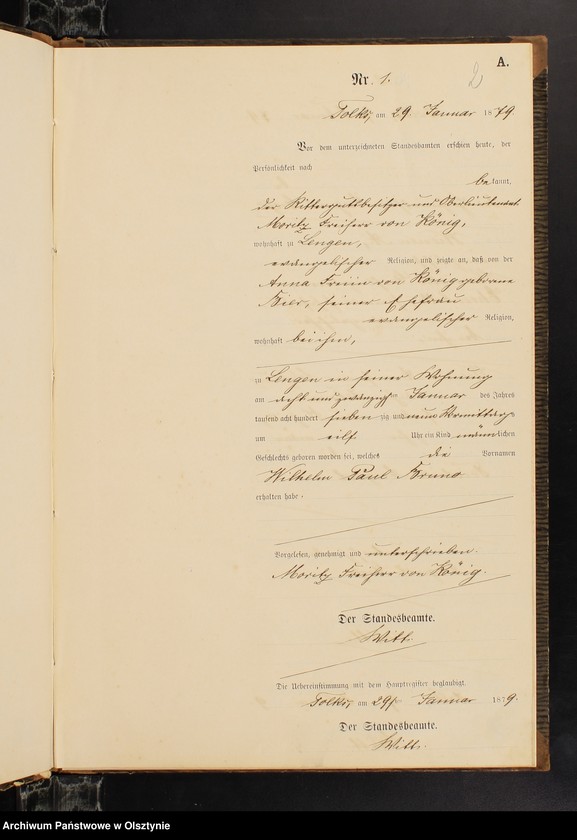 A.
2
Nr. 1.
Tolks, am 29 Januar 1879
Vor dem unterzeichneten Standesbeamten erschien heute, der
Persönlichkeit nach
bekannt,
der Rittergutsbesitzer und Oberlieutenant
Moritz Freiherr von König,
wohnhaft zu Lengen,
evangelischer Religion, und zeigte an, daß von der
Anna Freiin von König geborene
Bier, seiner Ehefrau
evangelischer Religion,
wohnhaft bei ihm,
zu Lengen in seiner Wohnung
am acht und zwanzigsten Januar des Jahres
tausend acht hundert siebenzig und neun Vormittags
um eilf Uhr ein Kind männlichen
Geschlechts geboren worden sei, welches die Vornamen
Wilhelm Paul Bruno
erhalten habe.
Vorgelesen, genehmigt und unterschrieben.
Moritz Freiherr von König.
Der Standesbeamte.
Witt.
Die Uebereinstimmung mit dem Hauptregister beglaubigt
Tolks, am 29. Januar 1879.
Der Standesbeamte.
Witt.
Archiwum Państwowe w Olsztynie